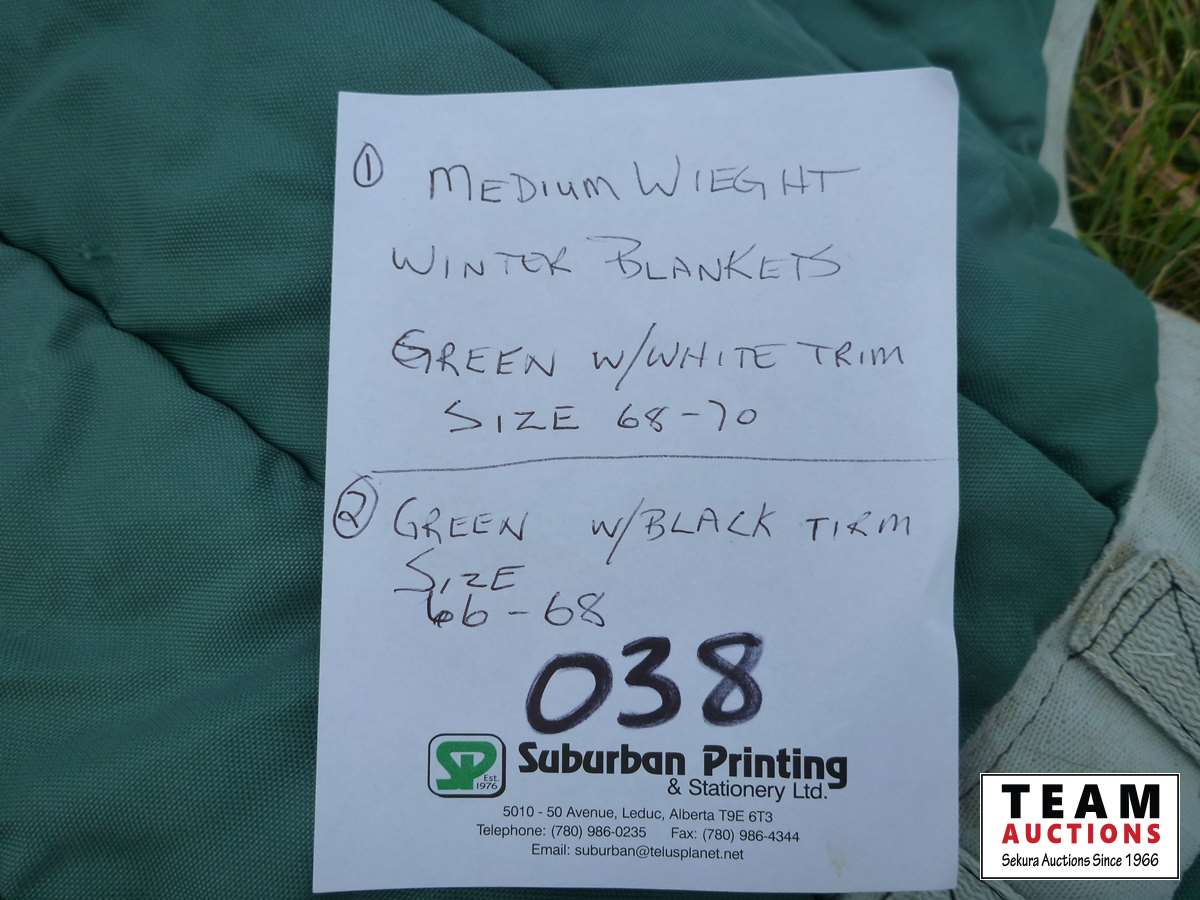 ① MEDIUM WIEGHT
WINTER BLANKETS
GREEN W/WHITE TRIM
SIZE 68-70
② GREEN W/BLACK TIRM
SIZE
66-68
038
SP Est. 1976
Suburban Printing
& Stationery Ltd.
5010 - 50 Avenue, Leduc, Alberta T9E 6T3
Telephone: (780) 986-0235 Fax: (780) 986-4344
Email: suburban@telusplanet.net
TEAM
AUCTIONS
Sekura Auctions Since 1966